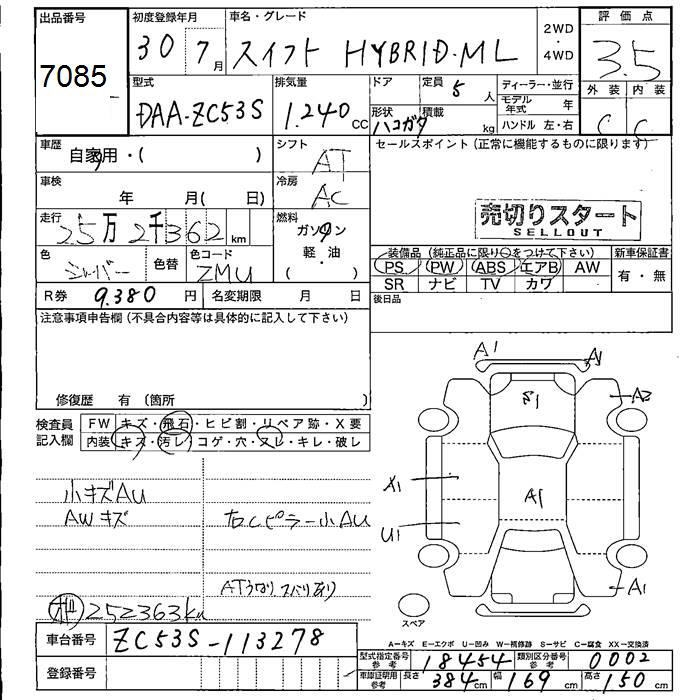 出品番号
7085
初度登録年月
30 7月
車名・グレード
スイフト HYBRID・ML
2WD
・
4WD
評価点
3.5
外装 内装
C C
型式
DAA-ZC53S
排気量
1.240 cc
ドア
形状
ハコガタ
定員
5 人
積載
kg
ディーラー・並行
モデル年式 年
ハンドル 左・右
車歴
自家用・( )
シフト
AT
車検
年 月( 日)
冷房
AC
走行
25万2千362 km
燃料
ガソリン
軽・油
( )
色
シルバー
色替
色コード
ZMU
R券 9.380 円
名変期限 月 日
セールスポイント(正常に機能するものに限ります)
売切りスタート
SELLOUT
装備品(純正品に限り○をつけて下さい)
PS PW ABS エアB AW
SR ナビ TV カワ
新車保証書
有・無
後日品
注意事項申告欄(不具合内容等は具体的に記入して下さい)
修復歴 有 (箇所 )
検査員記入欄
FW キズ・飛石・ヒビ割・リペア跡・X要
内装 キズ・汚レ・コゲ・穴・スレ・キレ・破レ
小キズAU
AWキズ
右Cピラー小AU
ATうなり スベリあり
252363km
車台番号 ZC53S-113278
登録番号
A1
A1
S1
A2
X1
A1
U1
A1
スペア
A−キズ E−エクボ U−凹み W−補修跡 S−サビ C−腐食 XX−交換済
型式指定番号 参考 18454
類別区分番号 参考 0002
車庫証明用 参考 長さ 384cm 幅 169cm 高さ 150cm